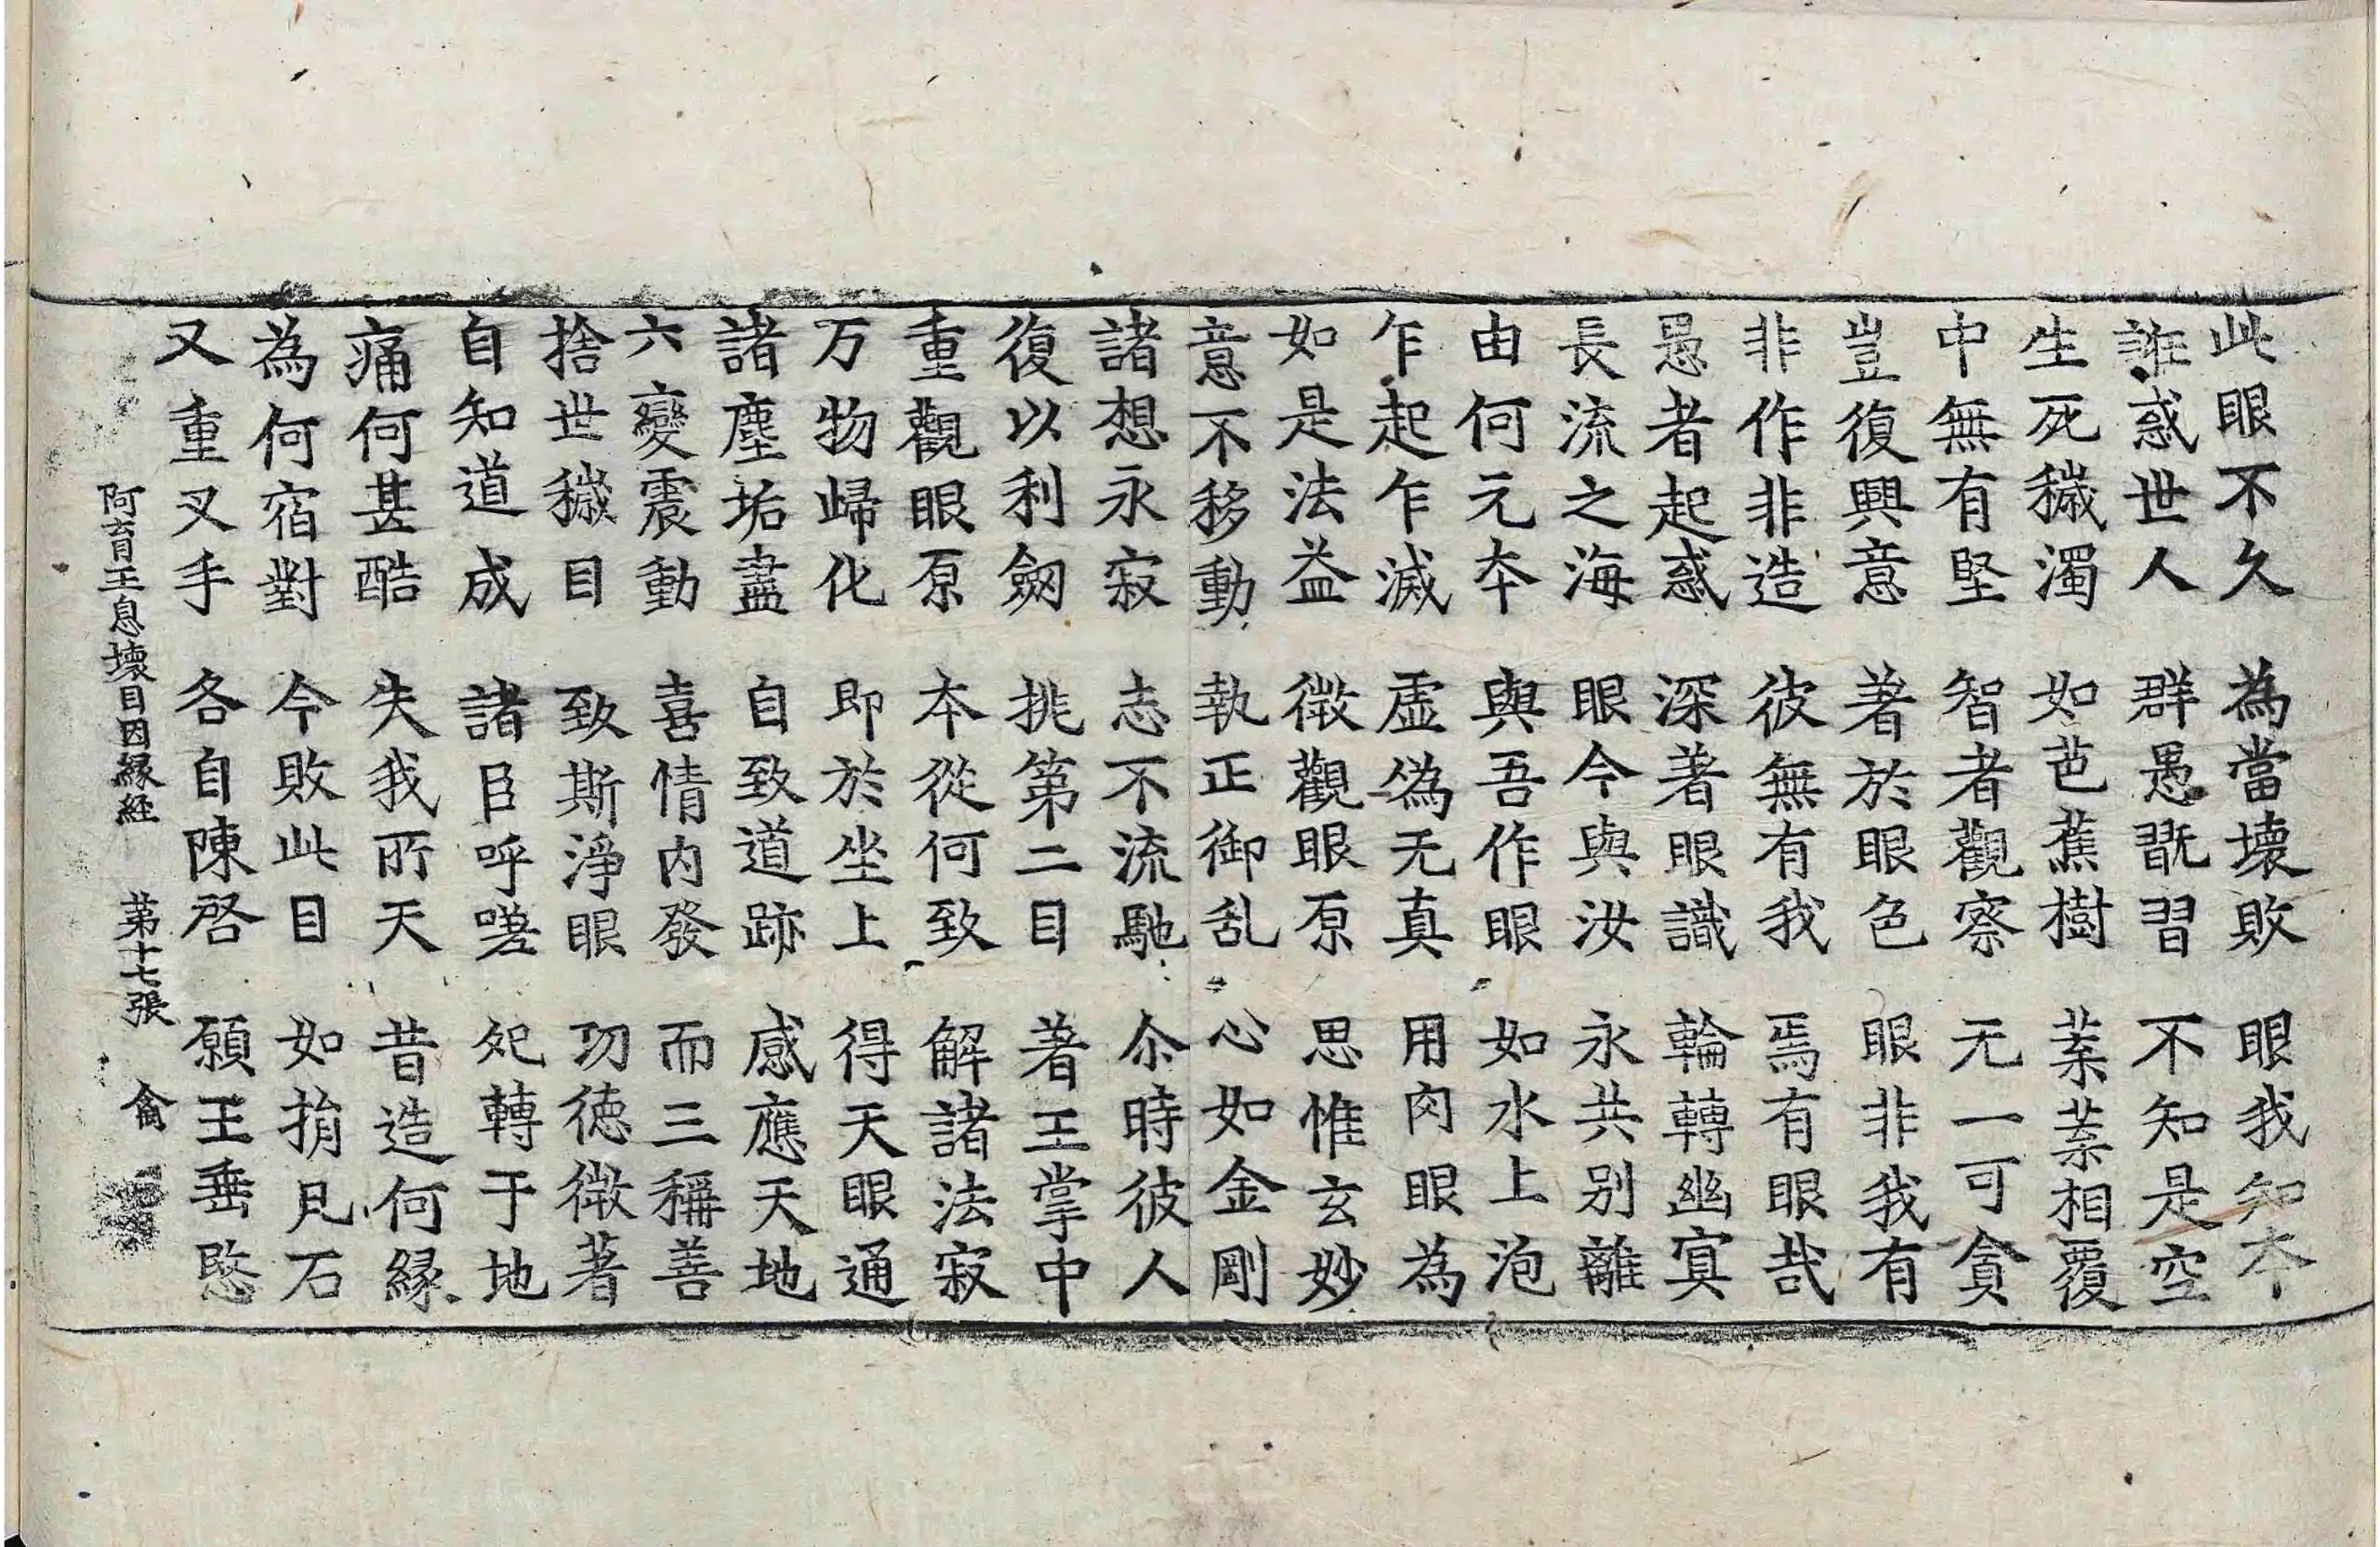 此眼不久 為當壞敗 眼我知夲
誑惑世人 群愚翫習 不知是空
生死穢濁 如芭蕉樹 葉葉相覆
中無有堅 智者觀察 无一可貪
豈復興意 著於眼色 眼非我有
非作非造 彼無有我 焉有眼哉
愚者起惑 深著眼識 輪轉幽冥
長流之海 眼今與汝 永共别離
由何元夲 與吾作眼 如水上泡
乍起乍滅 虛偽无真 用肉眼為
如是法益 微觀眼原 思惟玄妙
意不移動 執正御乱 心如金剛
諸想永寂 志不流馳 尒時彼人
復以利劒 挑第二目 著王掌中
重觀眼原 本從何致 解諸法寂
万物歸化 即於坐上 得天眼通
諸塵垢盡 自致道跡 感應天地
六變震動 喜情内發 而三稱善
捨世穢目 致斯淨眼 功德微著
自知道成 諸臣呼嗟 宛轉于地
痛何甚酷 失我所天 昔造何縁
為何宿對 今敗此目 如捐凡石
又重叉手 各自陳啓 願王垂愍
阿育王息壞目因縁経 第十七張 禽